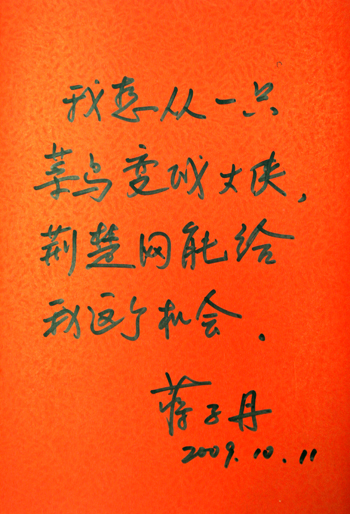 我想从一只
菜鸟变成大侠，
荆楚网能给
我这个机会．
蒋子丹
2009.10.11